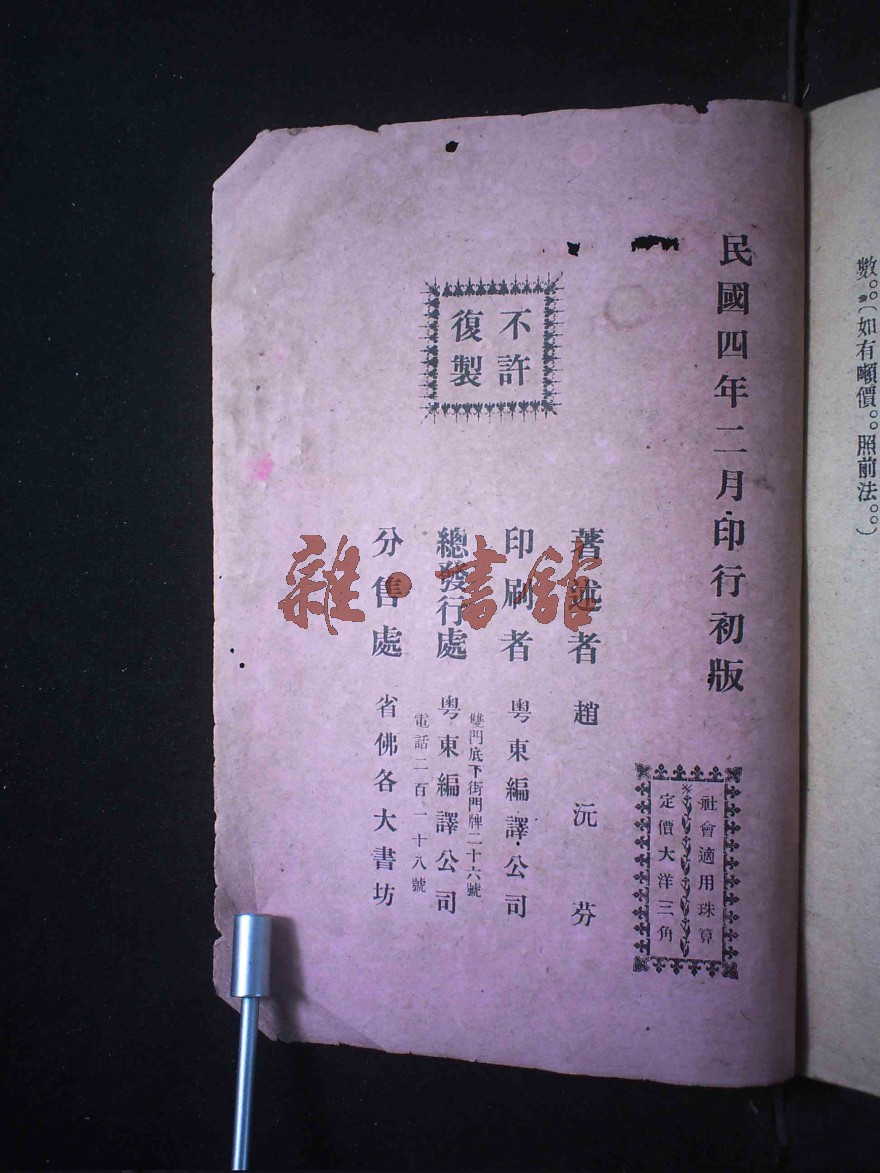 數。。(如有噸價。。照前法。。)
民國四年二月印行初版
社會適用珠算
定價大洋三角
不許
復製
著述者 趙沅芬
印刷者 粤東編譯公司
雙門底下街門牌二十六號
總發行處 粤東編譯公司
電話二百一十八號
分售處 省佛各大書坊
雜·書舘